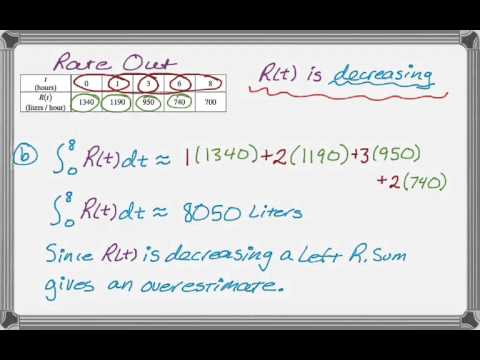 Rate Out
t (hours) 0 1 3 6 8
R(t) (liters / hour) 1340 1190 950 740 700
R(t) is decreasing
b ∫₀⁸ R(t)dt ≈ 1(1340)+2(1190)+3(950)
+2(740)
∫₀⁸ R(t)dt ≈ 8050 Liters
Since R(t) is decreasing a Left R. Sum
gives an overestimate.